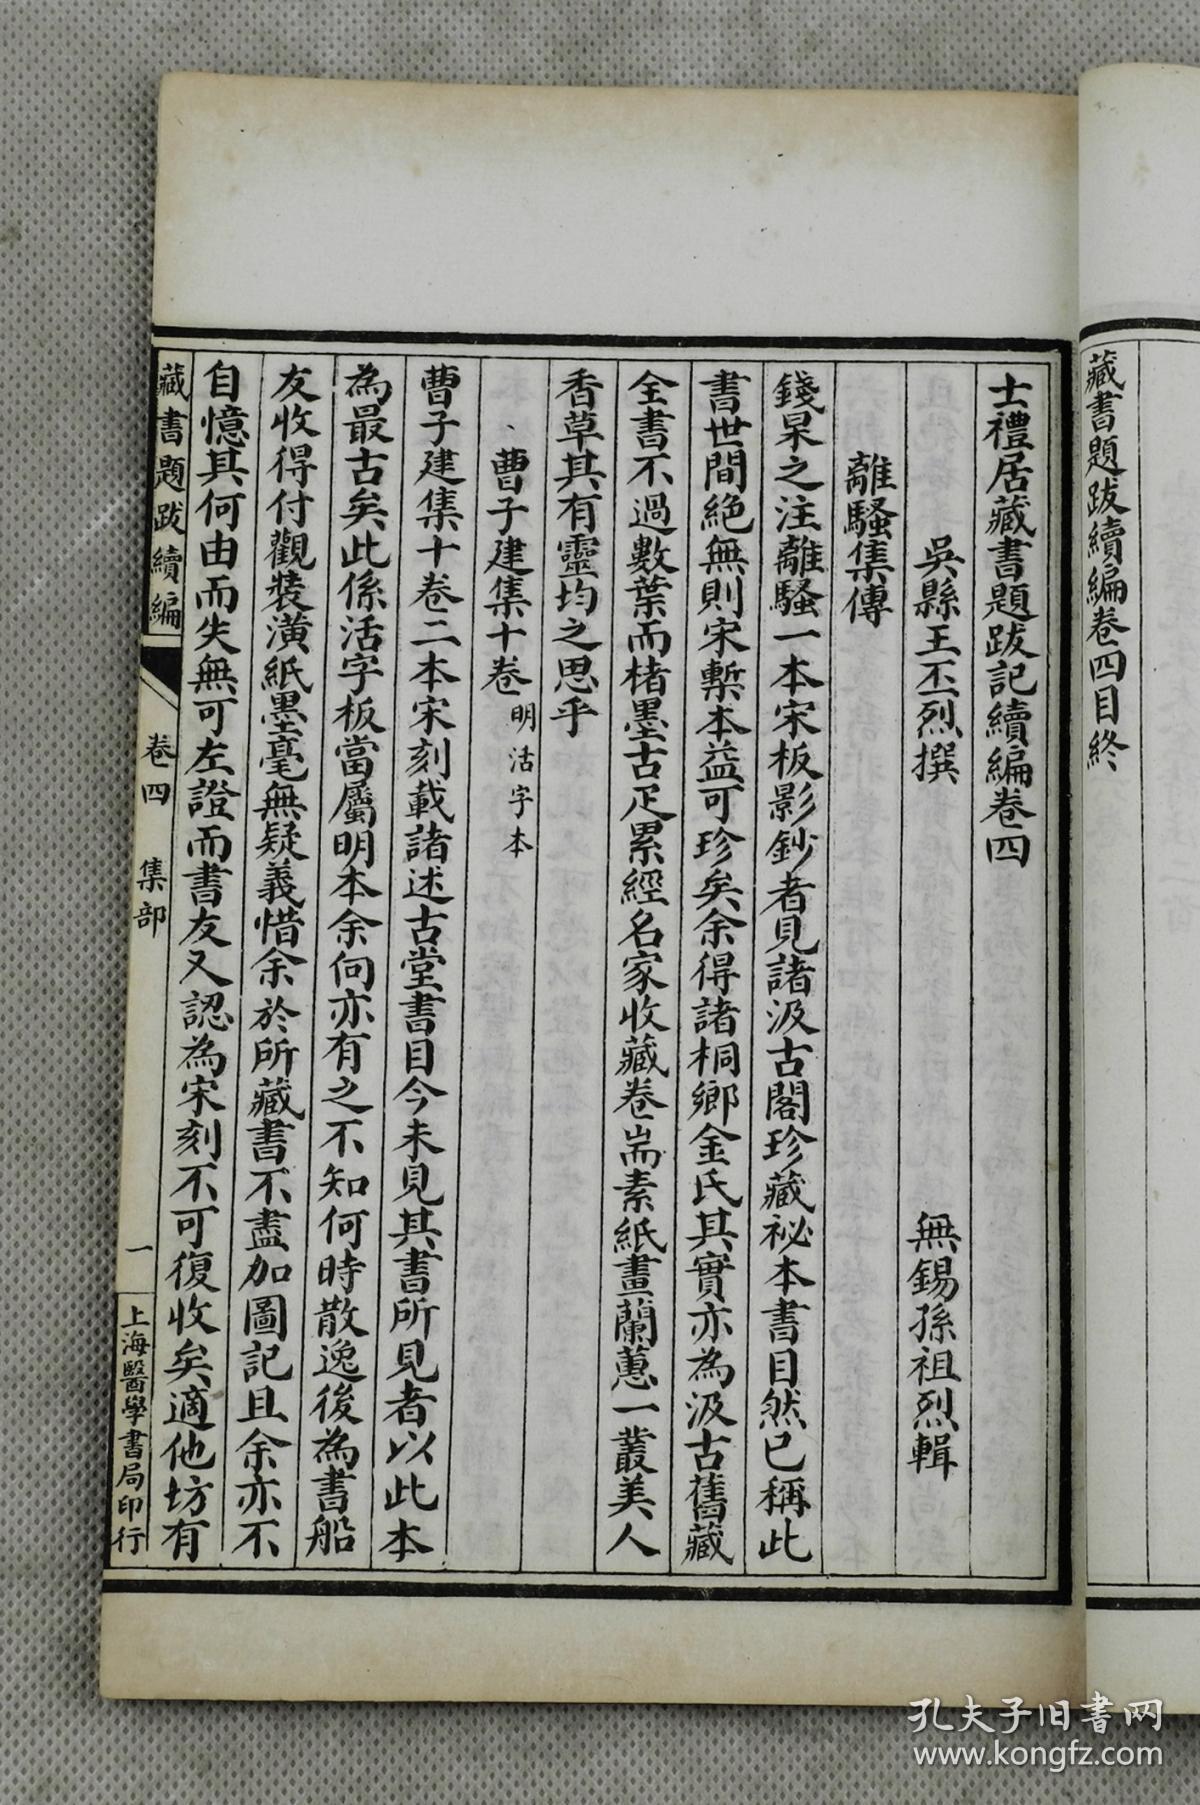 藏書題跋續編卷四目終
士禮居藏書題跋記續編卷四
吳縣王丕烈撰　無錫孫祖烈輯
離騷集傳
錢杲之注離騷一本宋板影鈔者見諸汲古閣珍藏祕本書目然已稱此
書世間絶無則宋槧本益可珍矣余得諸桐鄉金氏其實亦為汲古舊藏
全書不過數葉而楮墨古疋累經名家收藏卷耑素紙畫蘭蕙一叢美人
香草其有靈均之思乎
、曹子建集十卷 明活字本
曹子建集十卷二本宋刻載諸述古堂書目今未見其書所見者以此本
為最古矣此係活字板當屬明本余向亦有之不知何時散逸後為書船
友收得付觀裝潢紙墨毫無疑義惜余於所藏書不盡加圖記且余亦不
自憶其何由而失無可左證而書友又認為宋刻不可復收矣適他坊有
藏書題跋續編　卷四　集部　一　上海醫學書局印行
孔夫子旧书网
www.kongfz.com